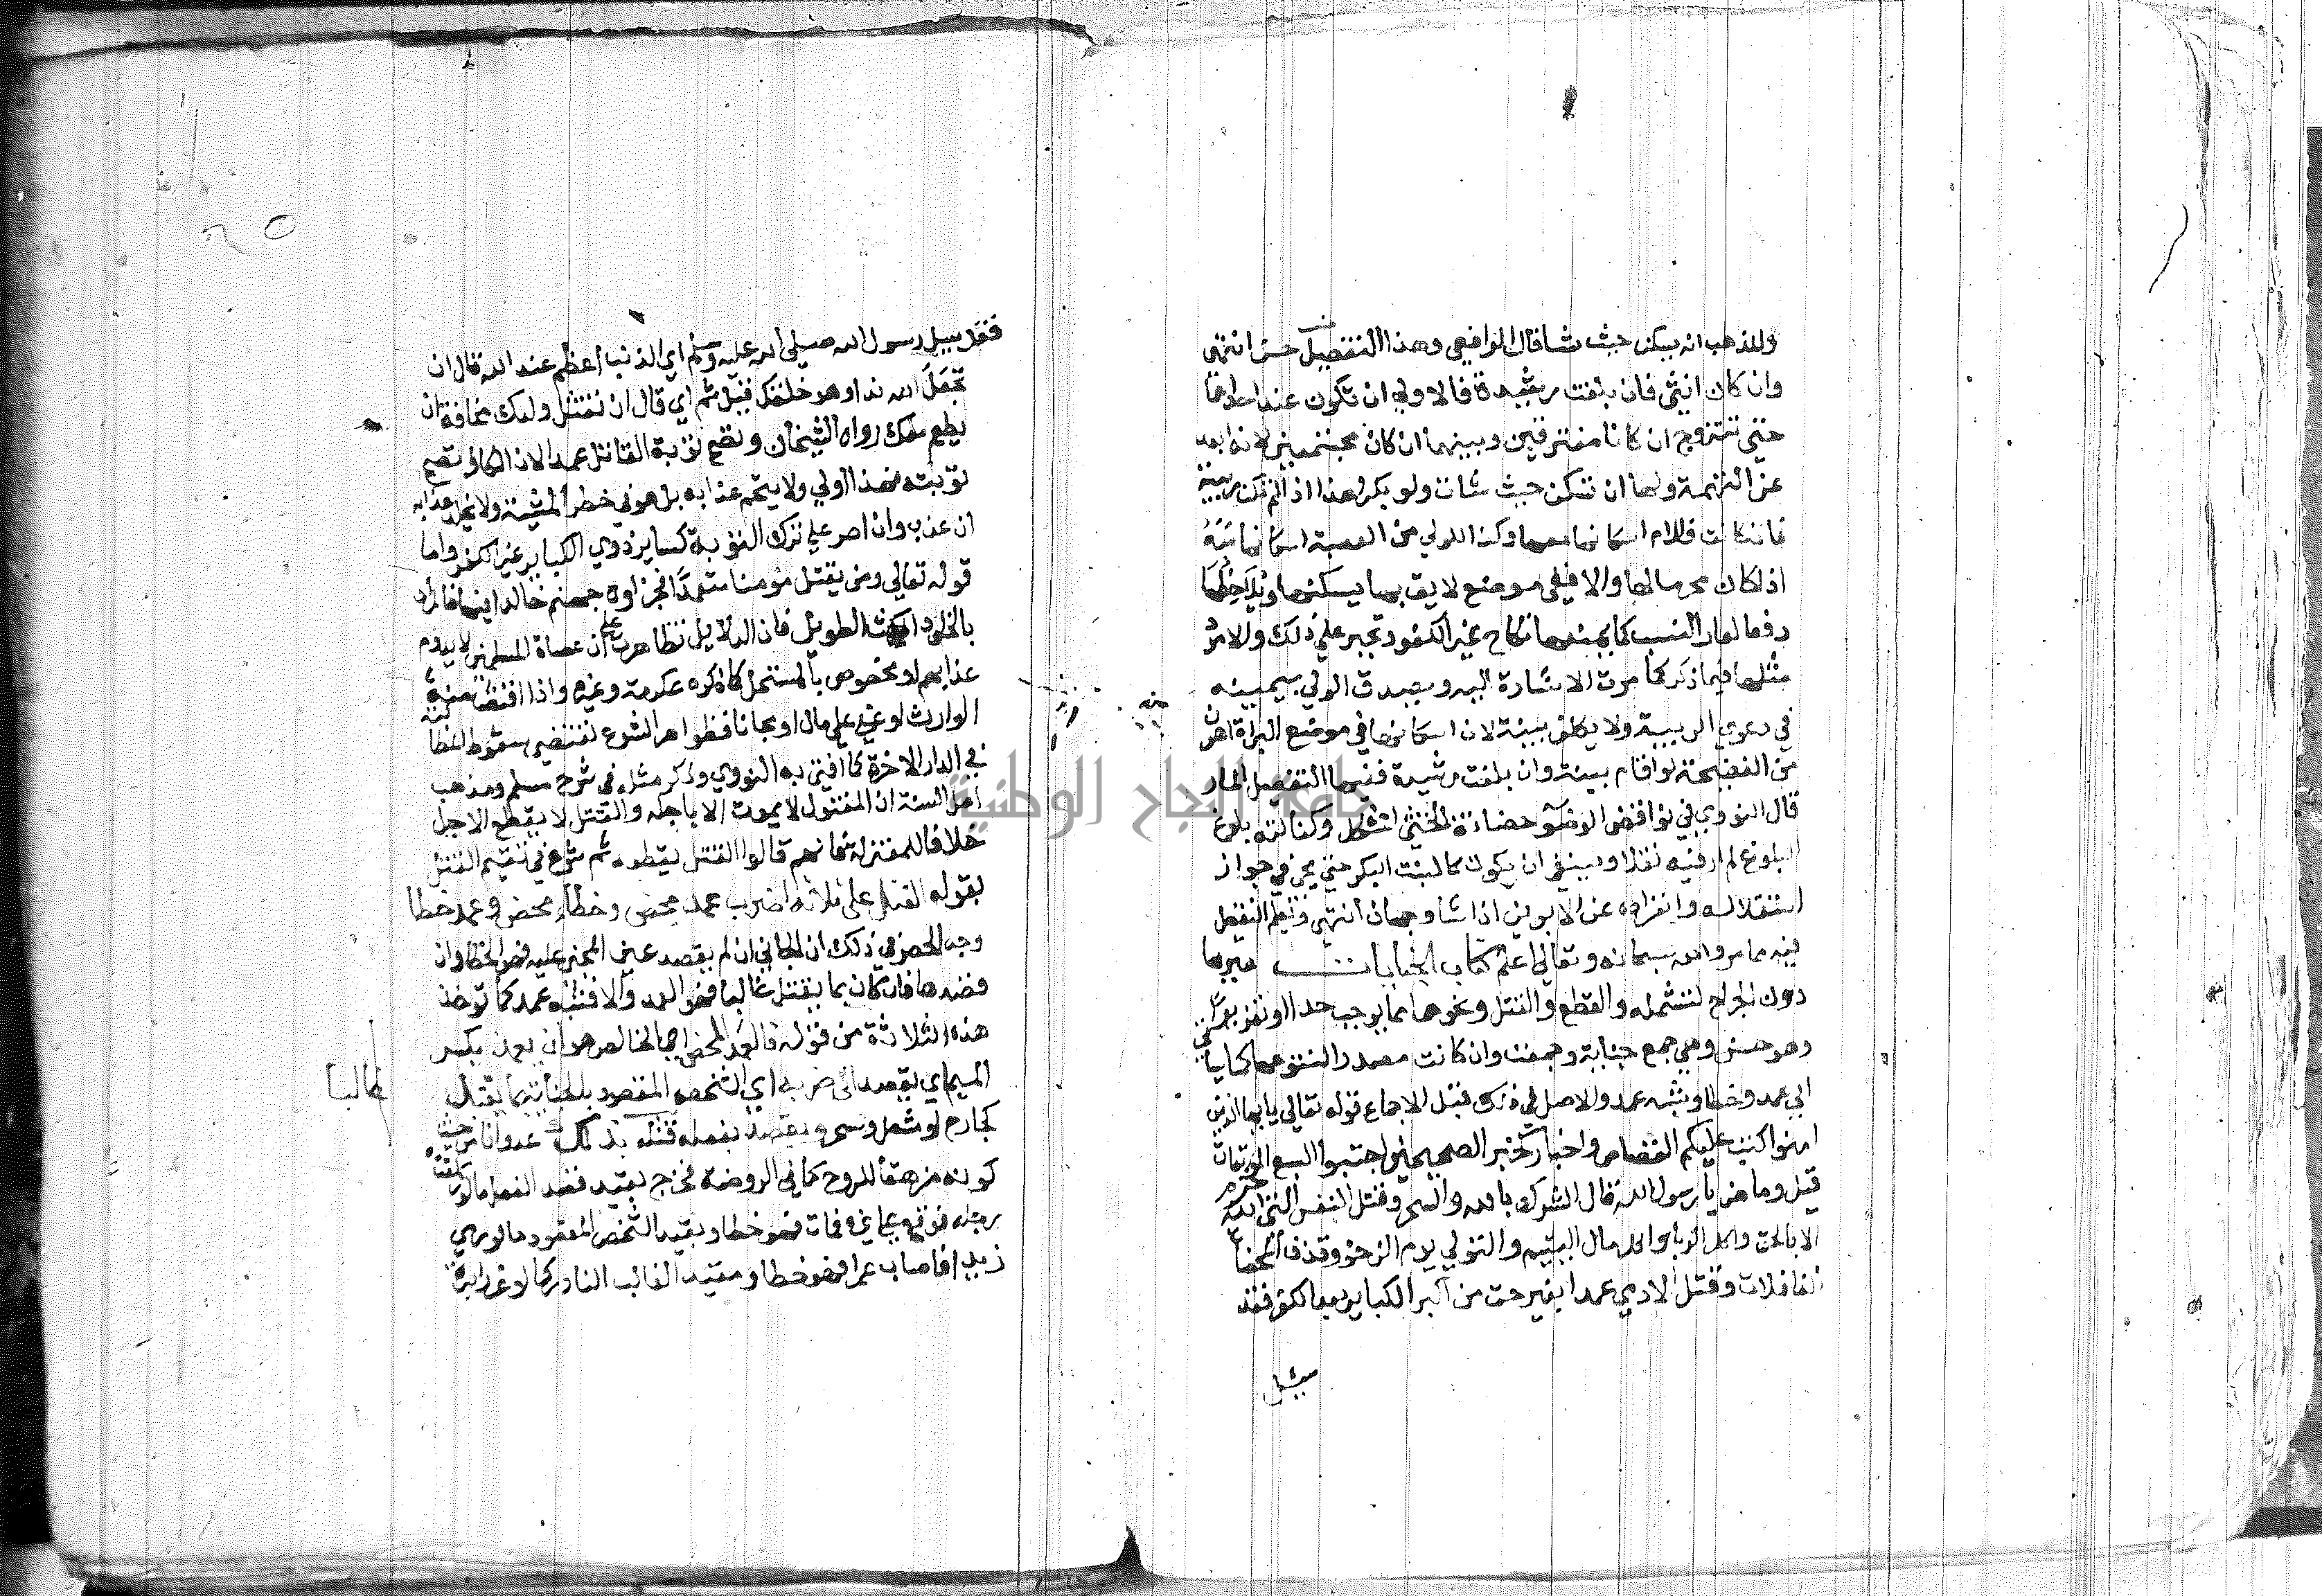 والمذهب انه يسكن حيث شا قال الرافعي وهذا التفصيل حسن انتهى
وان كان انثى فان بلغت رشيدة فالاولى ان تكون عند احدهما
حتى تتزوج ان كانا مفترقين وبينهما ان كانا مجتمعين لانه ابعد
عن التهمة ولها ان تسكن حيث شات ولو بكرا هذا اذا لم تكن ريبة
فان كانت فللام اسكانها معها وكذا للولي من العصبة اسكانها معه
اذا كان محرما لها والا ففي موضع لايق بها يسكنها ويلاحظها
دفعا لعار النسب كما يمنعها نكاح غير الكفو وتجبر على ذلك والامرد
مثلها فيما ذكر كما مرت الاشارة اليه ويصدق الولي بيمينه
في دعوى الريبة ولا يكلف بينة لان اسكانها في موضع البراة اهون
من الفضيحة لو اقام بينة وان بلغت غير رشيدة ففيها التفصيل المار
قال النووي في نواقض الوضو حضانة الخنثى المشكل وكفالته بعد
البلوغ لم ار فيه نقلا وينبغي ان يكون كالبنت البكر حتى يجي في جواز
استقلاله وانفراده عن الابوين اذا شا وجهان انتهى ويعلم التفصيل
فيه مما مر والله سبحانه وتعالى اعلم كتاب الجنايات عبر بها
دون الجراح لتشمله والقطع والقتل ونحوها مما يوجب حدا او تعزيرا
وهو حسن وهي جمع جناية وجمعت وان كانت مصدرا لتنوعها كما ياتي
الى عمد وخطا وشبه عمد والاصل في ذلك قبل الاجماع قوله تعالى يا ايها الذين
امنوا كتب عليكم القصاص واخبار كخبر الصحيحين اجتنبوا السبع الموبقات
قيل وما هن يا رسول الله قال الشرك بالله والسحر وقتل النفس التي حرم الله
الا بالحق واكل الربا واكل مال اليتيم والتولي يوم الزحف وقذف المحصنات
الغافلات وقتل الادمي عمدا بغير حق من اكبر الكباير بعد الكفر فقد
سئل
فقد سيل رسول الله صلى الله عليه وسلم اي الذنب اعظم عند الله قال ان
تجعل لله ندا وهو خلقك قيل ثم اي قال ان تقتل ولدك مخافة ان
يطعم معك رواه الشيخان وتصح توبة القاتل عمدا لان الكافر تصح
توبته فهذا اولى ولا يتحتم عذابه بل هو في خطر المشية ولا يخلد عذابه
ان عذب وان اصر على ترك التوبة كساير ذوي الكباير غير الكفر واما
قوله تعالى ومن يقتل مومنا متعمدا فجزاوه جهنم خالدا فيها فالمراد
بالخلود المكث الطويل فان الدلايل تظاهرت على ان عصاة المسلمين لا يدوم
عذابهم او مخصوص بالمستحل كما ذكره عكرمة وغيره واذا اقتص منه
الوارث او عفى على مال او مجانا فظواهر الشرع تقتضي سقوط المطالبة
في الدار الاخرة كما افتى به النووي وذكر مثله في شرح مسلم ومذهب
اهل السنة ان المقتول لا يموت الا باجله والقتل لا يقطع الاجل
خلافا للمعتزلة فانهم قالوا القتل يقطعه ثم شرع في تقسيم القتل
بقوله القتل على ثلاثة اضرب عمد محض وخطا محض وعمد خطا
وجه الحصر في ذلك ان الجاني ان لم يقصد عين المجني عليه فهو الخطا وان
قصدها فان كان بما يقتل غالبا فهو العمد والا فشبه عمد كما توخذ
هذه الثلاثة من قوله فالعمد المحض اي الخالص هو ان يعمد بكسر
الميم اي يقصد الى ضربه اي الشخص المقصود بالجناية بما يقتل
غالبا
كجارح او مثقل وسحر ويقصد بفعله قتله بذلك عدوانا من حيث
كونه مزهقا للروح كما في الروضة فخرج بقيد قصد الفعل ما لو زلقت
رجله فوقع على غيره فمات فهو خطا وبقيد الشخص المقصود ما لو رمى
زيدا فاصاب عمرا فهو خطا وبقيد الغالب النادر كما لو غرز ابرة